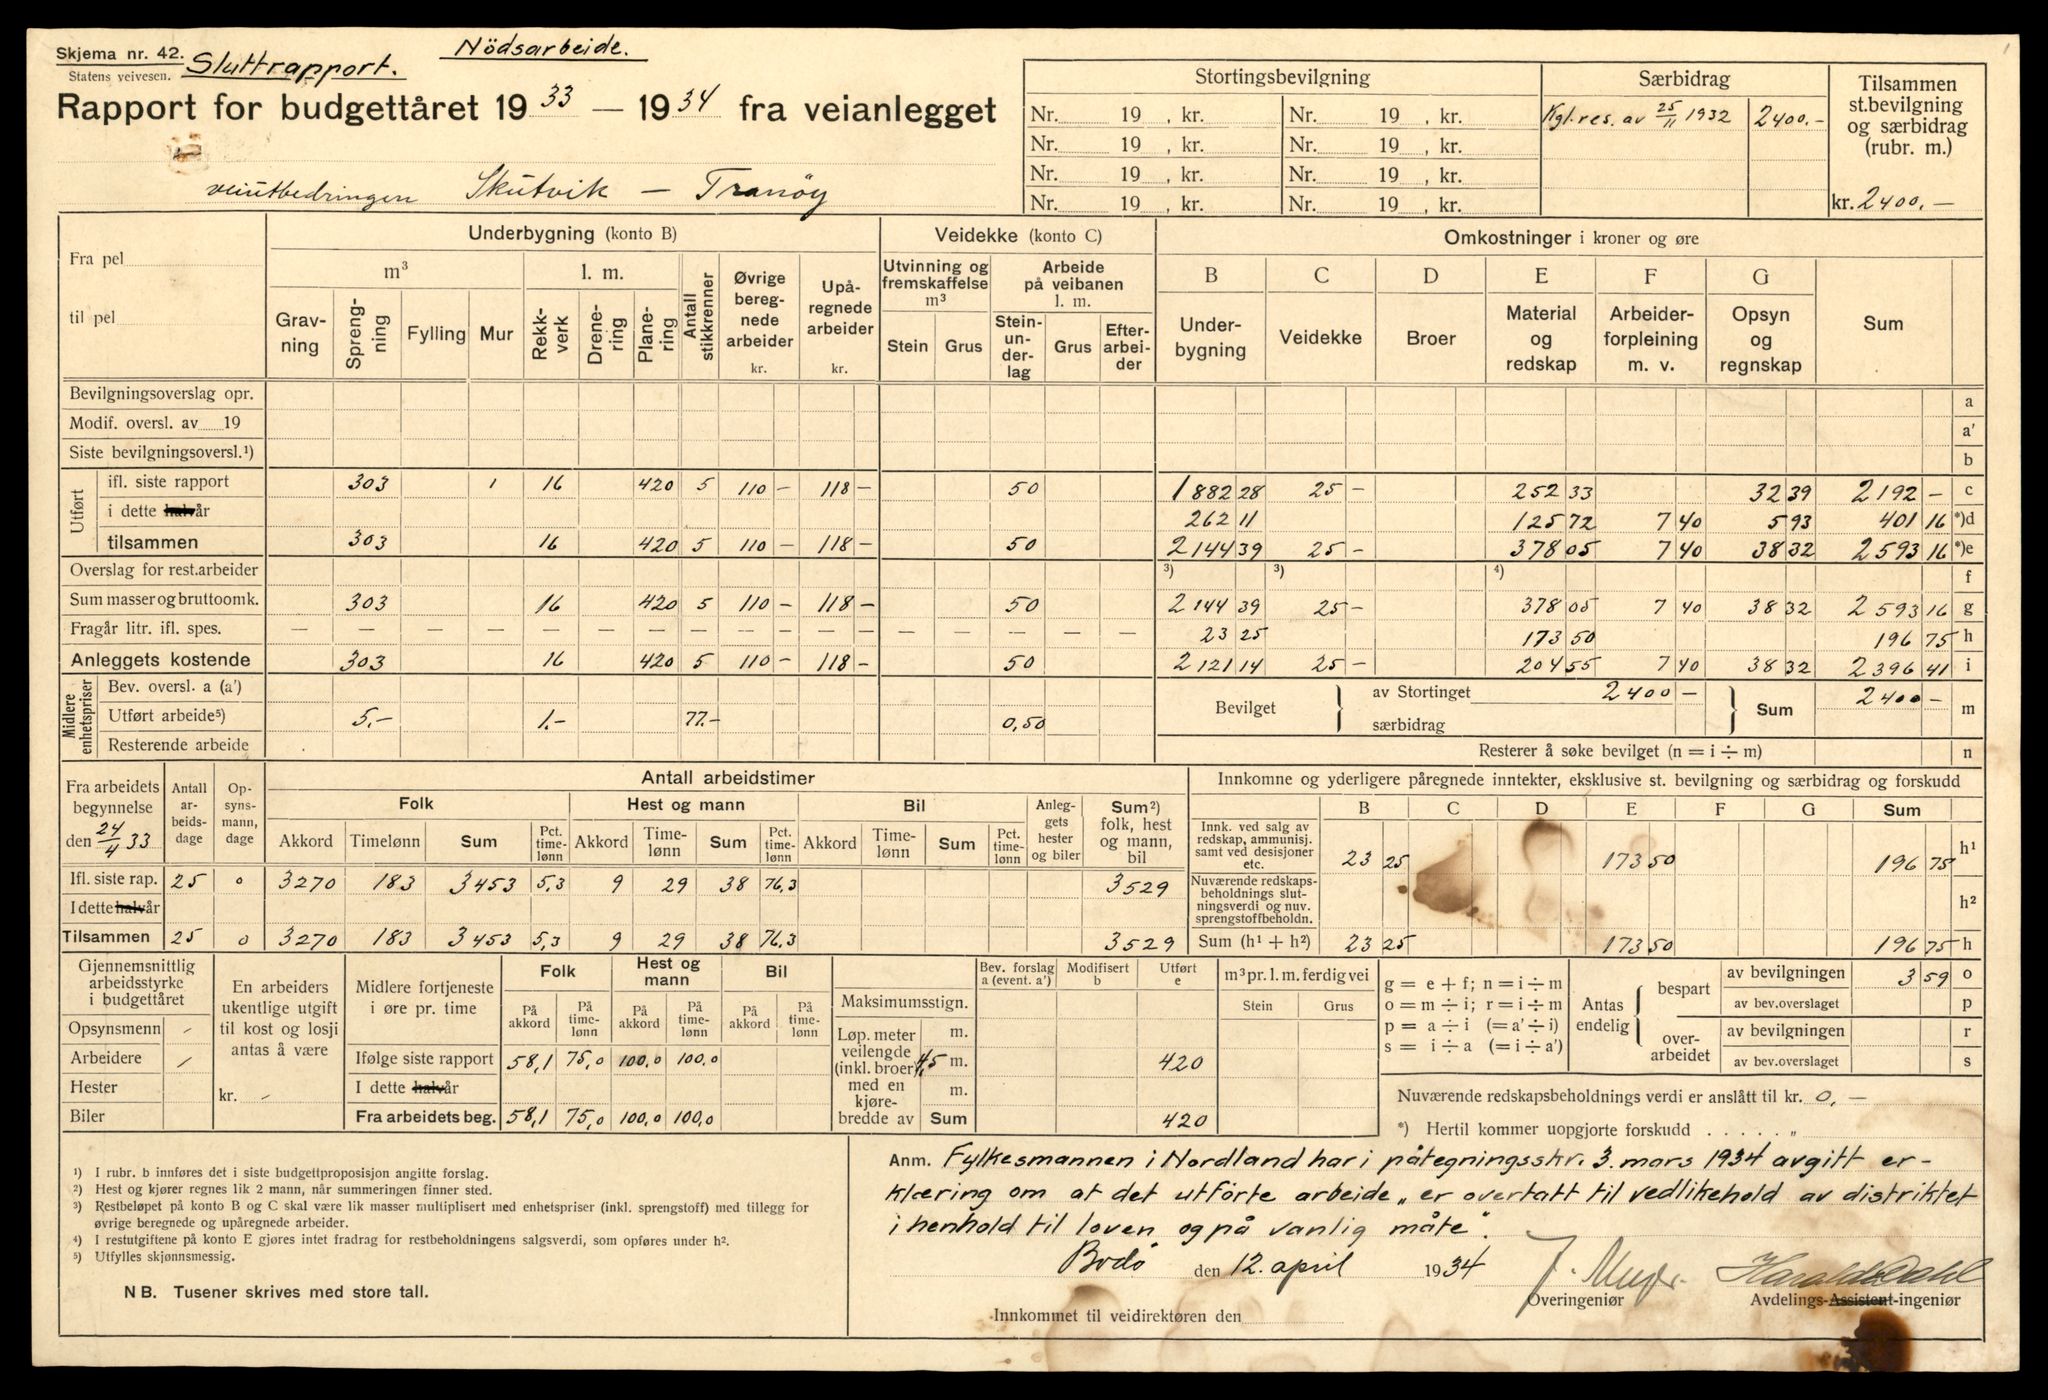 Skjema nr. 42.
Statens veivesen.
Sluttrapport.
Nödsarbeide.
Rapport for budgettåret 1933 — 1934 fra veianlegget
veiutbedringen Skutvik — Tranöy
Stortingsbevilgning
Særbidrag
Tilsammen
st.bevilgning
og særbidrag
(rubr. m.)
Nr. 19 , kr. Nr. 19 , kr. Kgl.res. av 25/11 1932 2400.-
Nr. 19 , kr. Nr. 19 , kr.
Nr. 19 , kr. Nr. 19 , kr.
Nr. 19 , kr. Nr. 19 , kr. kr. 2400.-
Fra pel
til pel
Underbygning (konto B)
m³
l. m.
Grav-
ning
Spreng-
ning
Fylling
Mur
Rekk-
verk
Drene-
ring
Plane-
ring
Antall
stikkrenner
Øvrige
bereg-
nede
arbeider
kr.
Upå-
regnede
arbeider
kr.
Veidekke (konto C)
Utvinning og
fremskaffelse
m³
Stein Grus
Arbeide
på veibanen
l. m.
Stein-
un-
der-
lag
Grus
Efter-
arbei-
der
Omkostninger i kroner og øre
B C D E F G
Under-
bygning
Veidekke
Broer
Material
og
redskap
Arbeider-
forpleining
m. v.
Opsyn
og
regnskap
Sum
Bevilgningsoverslag opr. a
Modif. oversl. av 19 a'
Siste bevilgningsoversl.¹) b
Utført
ifl. siste rapport 303 1 16 420 5 110 — 118 — 50 1882 28 25 — 252 33 32 39 2192 — c
i dette halvår 262 11 125 72 7 40 5 93 401 16 *)d
tilsammen 303 16 420 5 110 — 118 — 50 2144 39 25 — 378 05 7 40 38 32 2593 16 *)e
Overslag for rest.arbeider ³) ³) ⁴) f
Sum masser og bruttoomk. 303 16 420 5 110 — 118 — 50 2144 39 25 — 378 05 7 40 38 32 2593 16 g
Fragår litr. ifl. spes. — — — — — — — — — — — — — — — — 23 25 173 50 196 75 h
Anleggets kostende 303 16 420 5 110 — 118 — 50 2121 14 25 — 204 55 7 40 38 32 2396 41 i
Midlere
enhetspriser
Bev. oversl. a (a')
Utført arbeide⁵) 5.- 1.- 77.- 0,50
Resterende arbeide
Bevilget
av Stortinget 2400 —
særbidrag
Sum 2400 — m
Resterer å søke bevilget (n = i ÷ m) n
Fra arbeidets
begynnelse
den 24/4 33
Antall
ar-
beids-
dage
Op-
synsmann,
dage
Antall arbeidstimer
Folk Hest og mann Bil
Akkord Timelønn Sum Pct.
time-
lønn
Akkord Time-
lønn Sum Pct.
time-
lønn
Akkord Time-
lønn Sum Pct.
time-
lønn
Anleg-
gets
hester
og biler
Sum²)
folk, hest
og mann,
bil
Ifl. siste rap. 25 0 3270 183 3453 5,3 9 29 38 76,3 3529
I dette halvår
Tilsammen 25 0 3270 183 3453 5,3 9 29 38 76,3 3529
Innkomne og yderligere påregnede inntekter, eksklusive st. bevilgning og særbidrag og forskudd
B C D E F G Sum
Innk. ved salg av
redskap, ammunisj.
samt ved desisjoner
etc. 23 25 173 50 196 75 h¹
Nuværende redskaps-
beholdnings slut-
ningsverdi og nuv.
sprengstoffbeholdn. h²
Sum (h¹ + h²) 23 25 173 50 196 75 h
Gjennemsnittlig
arbeidsstyrke
i budgettåret
Opsynsmenn /
Arbeidere /
Hester
Biler
En arbeiders
ukentlige utgift
til kost og losji
antas å være
kr. -
Midlere fortjeneste
i øre pr. time
Folk Hest og
mann Bil
På
akkord
På
time-
lønn
På
akkord
På
time-
lønn
På
akkord
På
time-
lønn
Ifølge siste rapport 58,1 75,0 100,0 100,0
I dette halvår
Fra arbeidets beg. 58,1 75,0 100,0 100,0
Bev. forslag
a (event. a')
Modifisert
b
Utført
e
m³ pr. l. m. ferdig vei
Stein Grus
Maksimumsstign.
Løp. meter
veilengde
(inkl. broer)
med en
kjøre-
bredde av
m.
4,5 m. 420
m.
Sum 420
g = e + f; n = i ÷ m
o = m ÷ i; r = i ÷ m
p = a ÷ i (= a' ÷ i)
s = i ÷ a (= i ÷ a')
Antas
endelig
bespart
av bevilgningen 3 59 o
av bev.overslaget p
over-
arbeidet
av bevilgningen r
av bev.overslaget s
Nuværende redskapsbeholdnings verdi er anslått til kr. 0,—
*) Hertil kommer uopgjorte forskudd . . . . . „
¹) I rubr. b innføres det i siste budgettproposisjon angitte forslag.
²) Hest og kjører regnes lik 2 mann, når summeringen finner sted.
³) Restbeløpet på konto B og C skal være lik masser multiplisert med enhetspriser (inkl. sprengstoff) med tillegg for
øvrige beregnede og upåregnede arbeider.
⁴) I restutgiftene på konto E gjøres intet fradrag for restbeholdningens salgsverdi, som opføres under h².
⁵) Utfylles skjønnsmessig.
NB. Tusener skrives med store tall.
Anm. Fylkesmannen i Nordland har i påtegningsskr. 3. mars 1934 avgitt er-
klæring om at det utförte arbeide „er overtatt til vedlikehold av distriktet
i henhold til loven og på vanlig måte".
Bodö den 12. april 1934
Overingeniør
Harald Dahl
Avdelings-Assistent-ingeniør
Innkommet til veidirektøren den